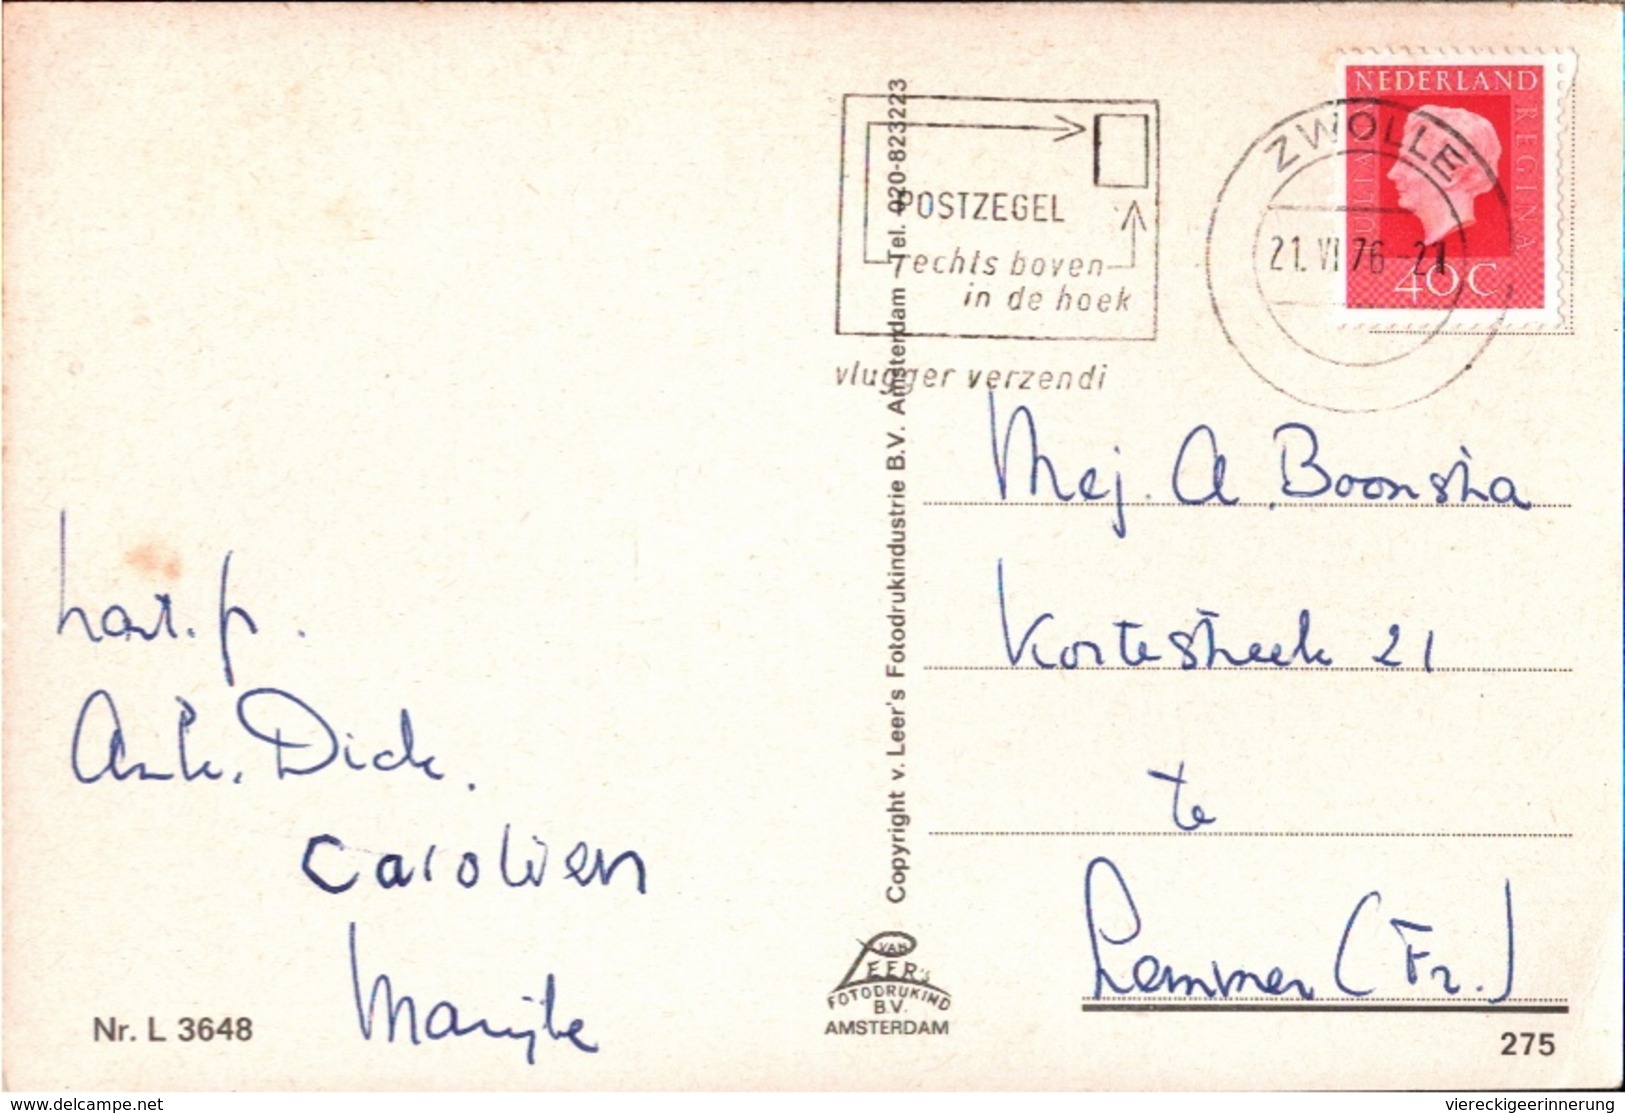 NEDERLAND
REGINA
40C
ZWOLLE
21. VI 76-21
POSTZEGEL
rechts boven
in de hoek
vlugger verzendi
hart. gr.
Ank. Dick.
Carolien
Marijke
Mej. A. Boonstra
Kortestreek 21
te
Lemmer (Fr.)
Copyright v. Leer's Fotodrukindustrie B.V. Amsterdam Tel. 020-823223
VAN
LEER's
FOTODRUKIND
B.V.
AMSTERDAM
Nr. L 3648
275
delcampe.net
viereckigeerinnerung